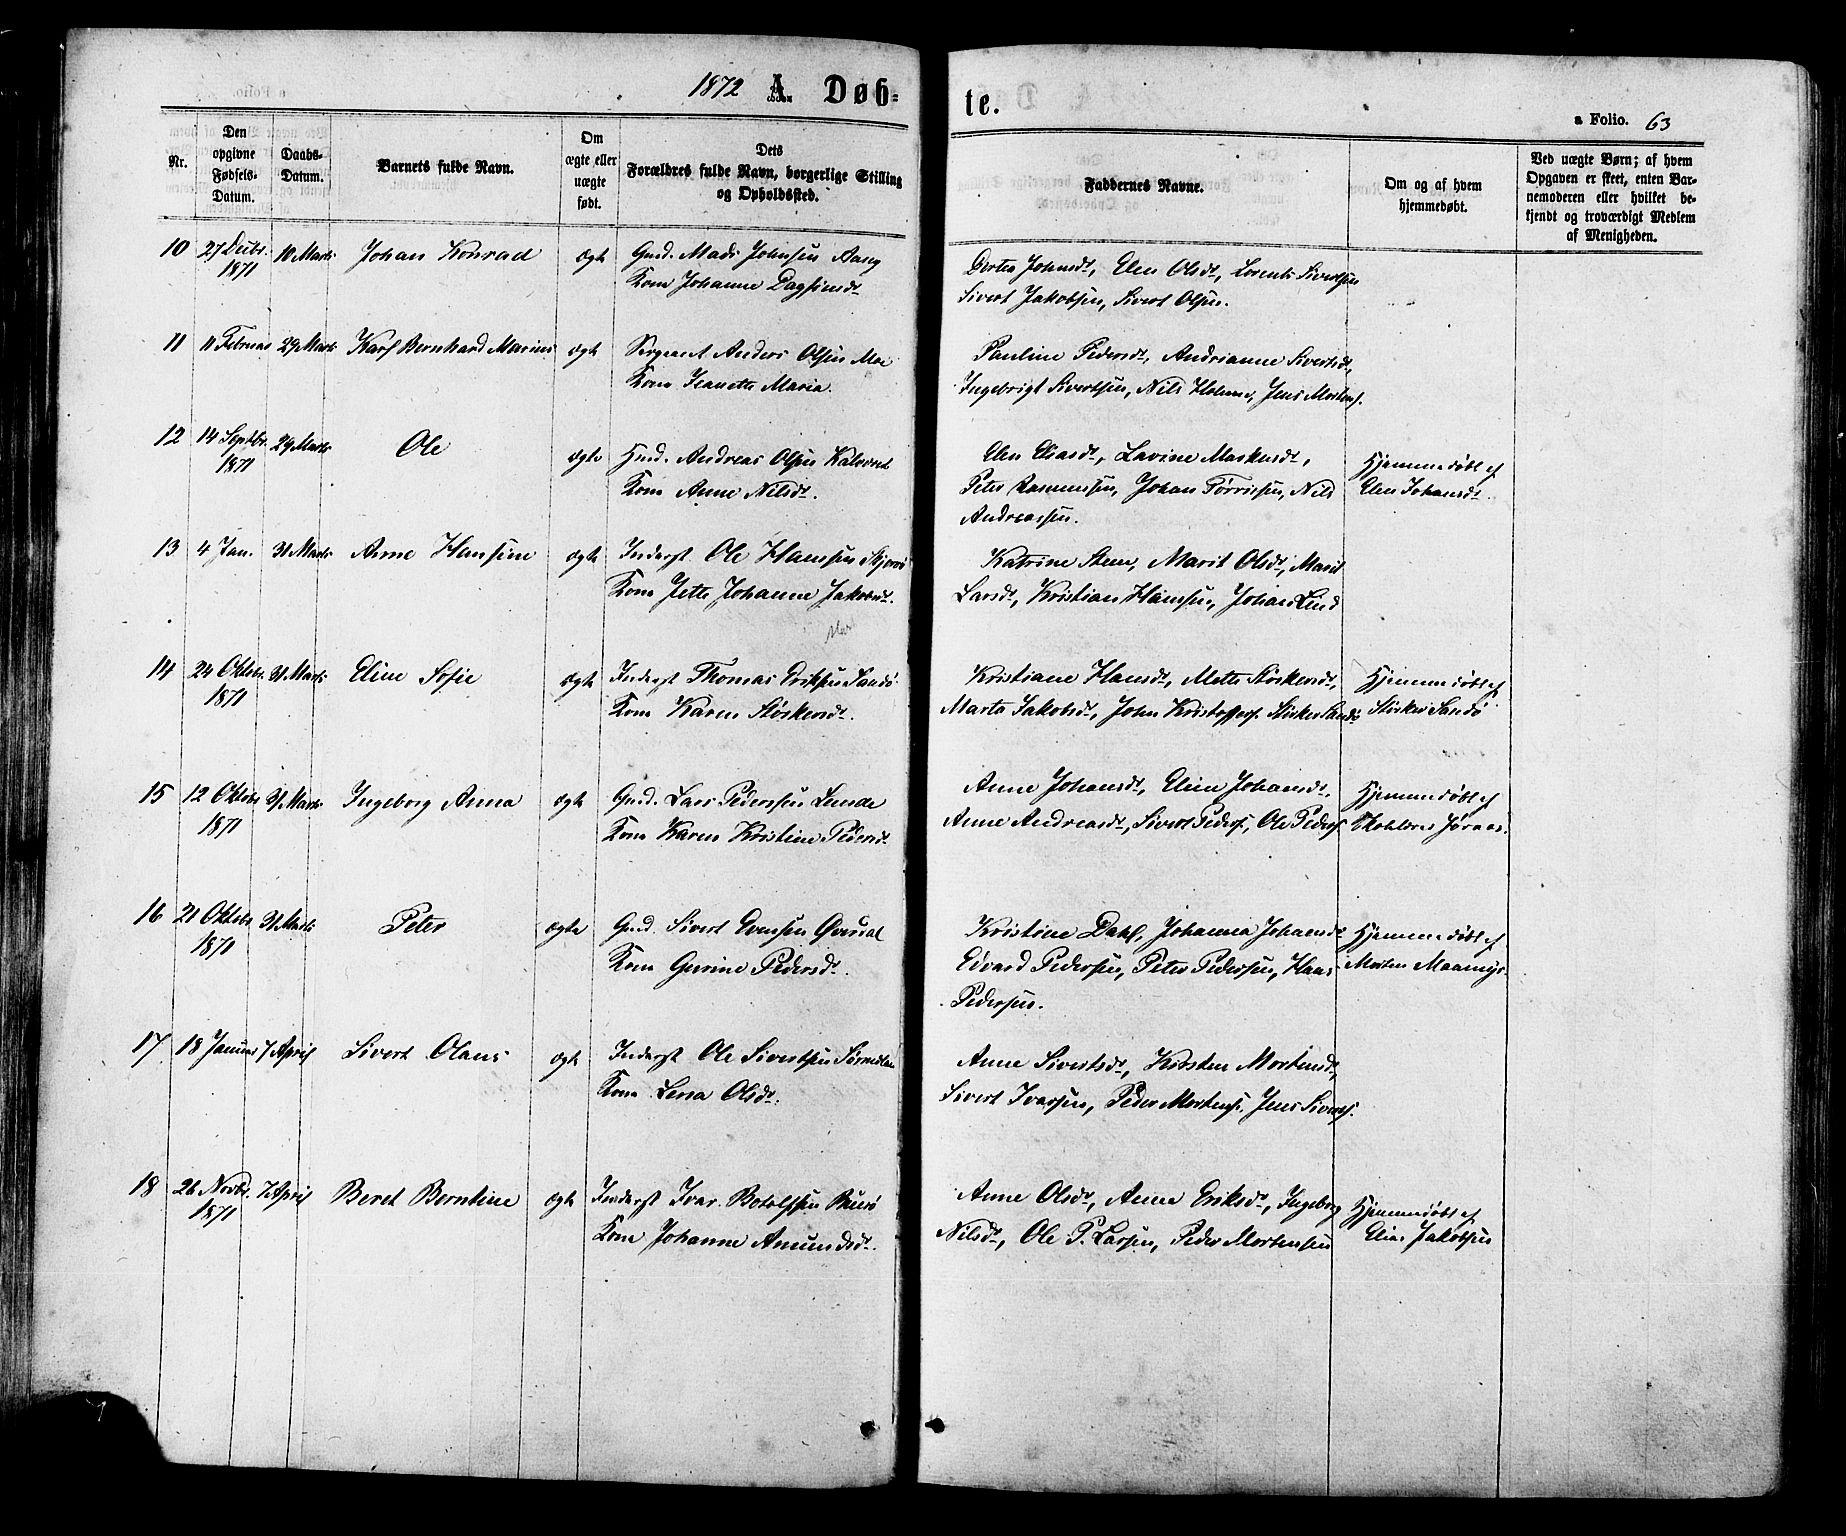 1872 A. Døb=
te.
a Folio. 63
Nr.
Den opgivne Fødsels-Datum.
Daabs-Datum.
Barnets fulde Navn.
Om ægte eller uægte født.
Dets Forældres fulde Navn, borgerlige Stilling og Opholdssted.
Faddernes Navne.
Om og af hvem hjemmedøbt.
Ved uægte Børn; af hvem Opgaven er skeet, enten Barnemoderen eller hvilket bekjendt og troværdigt Medlem af Menigheden.
10 27 Decbr. 10 Marts Johan Konrad ægte Gmd. Mads Johnsen
1871 Kone Johanne Dagfinsdt
Dorten Johnsdt, Elen Olsdt, Lorents Sivertsen
Sivert Jakobsen, Sivert Olsen.
11 11 Februar 29 Marts Karl Bernhard Marius ægte Sergeant Anders Olsen Moe
Kone Jeanette Maria.
Pauline Pedersdt, Andrianne Sivertsdt,
Ingebrigt Sivertsen, Nils Holmen, Jens Mortens.
12 14 Septbr. 29 Marts Ole ægte Hmd. Andreas Olsen
1871 Kone Anne Nilsdt.
Elen Eliasdt, Lavine Markusdt,
Peter Rasmussen, Johan Tørrissen, Nils
Andreassen.
Hjemmedøbt af
Elen Johansdt.
13 4 Jan. 31 Marts Anne Hansine ægte Inderst Ole Hanssen
Kone Jette Johanne Jakobsdt.
Katrine Steen, Marit Olsdt, Marit
Larsdt, Kristian Hansen, Johan Lind
14 24 Oktobr. 31 Marts Eline Sofie ægte Inderst Thomas Eriksen Sandø
1871 Kone Karen Størkersdt.
Kristiane Hansdt, Mette Størkersdt,
Marta Jakobsdt, John Kristoffers. Størker Sandø
Hjemmedøbt af
Størker Sandø
15 12 Oktobr 31 Marts Ingeborg Anna ægte Gmd. Lars Pedersen Lunde
1871 Kone Karen Kristine Pedersdt
Anne Johansdt, Elien Johansdt,
Anne Andreasdt, Sivert Peders, Ole Peders
Hjemmedøbt af
16 21 Oktobr 31 Marts Peter ægte Gmd. Sivert Evensen
1871 Kone Gurine Pedersdt.
Kristine Dahl, Johanna Johansdt
Edvard Pedersen, Peter Pedersen, Haas
Pedersen.
Hjemmedøbt af
Morten
17 18 Januar 7 April Sivert Olaus ægte Inderst Ole Sivertsen
Kone Lena Olsdt.
Anne Sivertsdt, Kirsten Mortensdt,
Sivert Ivarsen, Peder Mortens. Jens Siverts.
18 26 Novbr. 7 April Beret Berntine ægte Inderst Ivar Botolfsen
1871 Kone Johanne Amundsdt.
Anne Olsdt, Anne Eriksdt, Ingeborg
Nilsdt, Ole P. Larsen, Peder Mortensen
Hjemmedøbt af
Elias Jakobsen